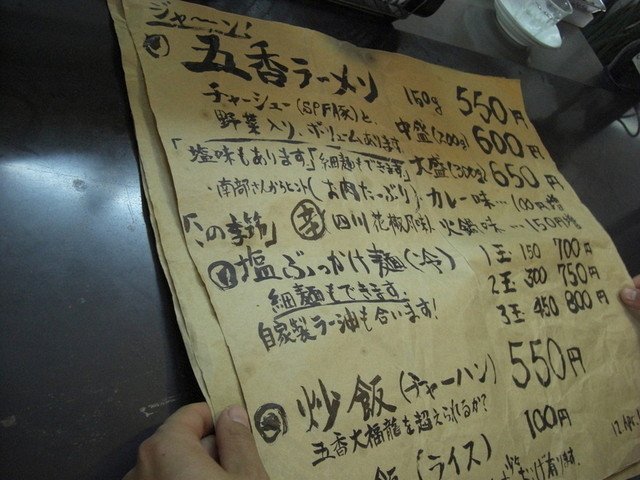 ジャ〜ン!
五香ラーメン 150g 550円
チャーシュー(SPF豚)と、
野菜入り、ボリュームあります 中盛(200g) 600円
「塩味もあります」「細麺もできます」 大盛(300g) 650円
・南部さんからヒント(お肉たっぷり) カレー味…100円増
「この季節」 辛 四川花椒風味 火鍋味…150円増
塩ぶっかけ麺(冷) 1玉 150 700円
細麺もできます。 2玉 300 750円
自家製ラー油も合います! 3玉 450 800円
炒飯(チャーハン) 550円
五香大福龍を超えられるか?
飯(ライス) 100円